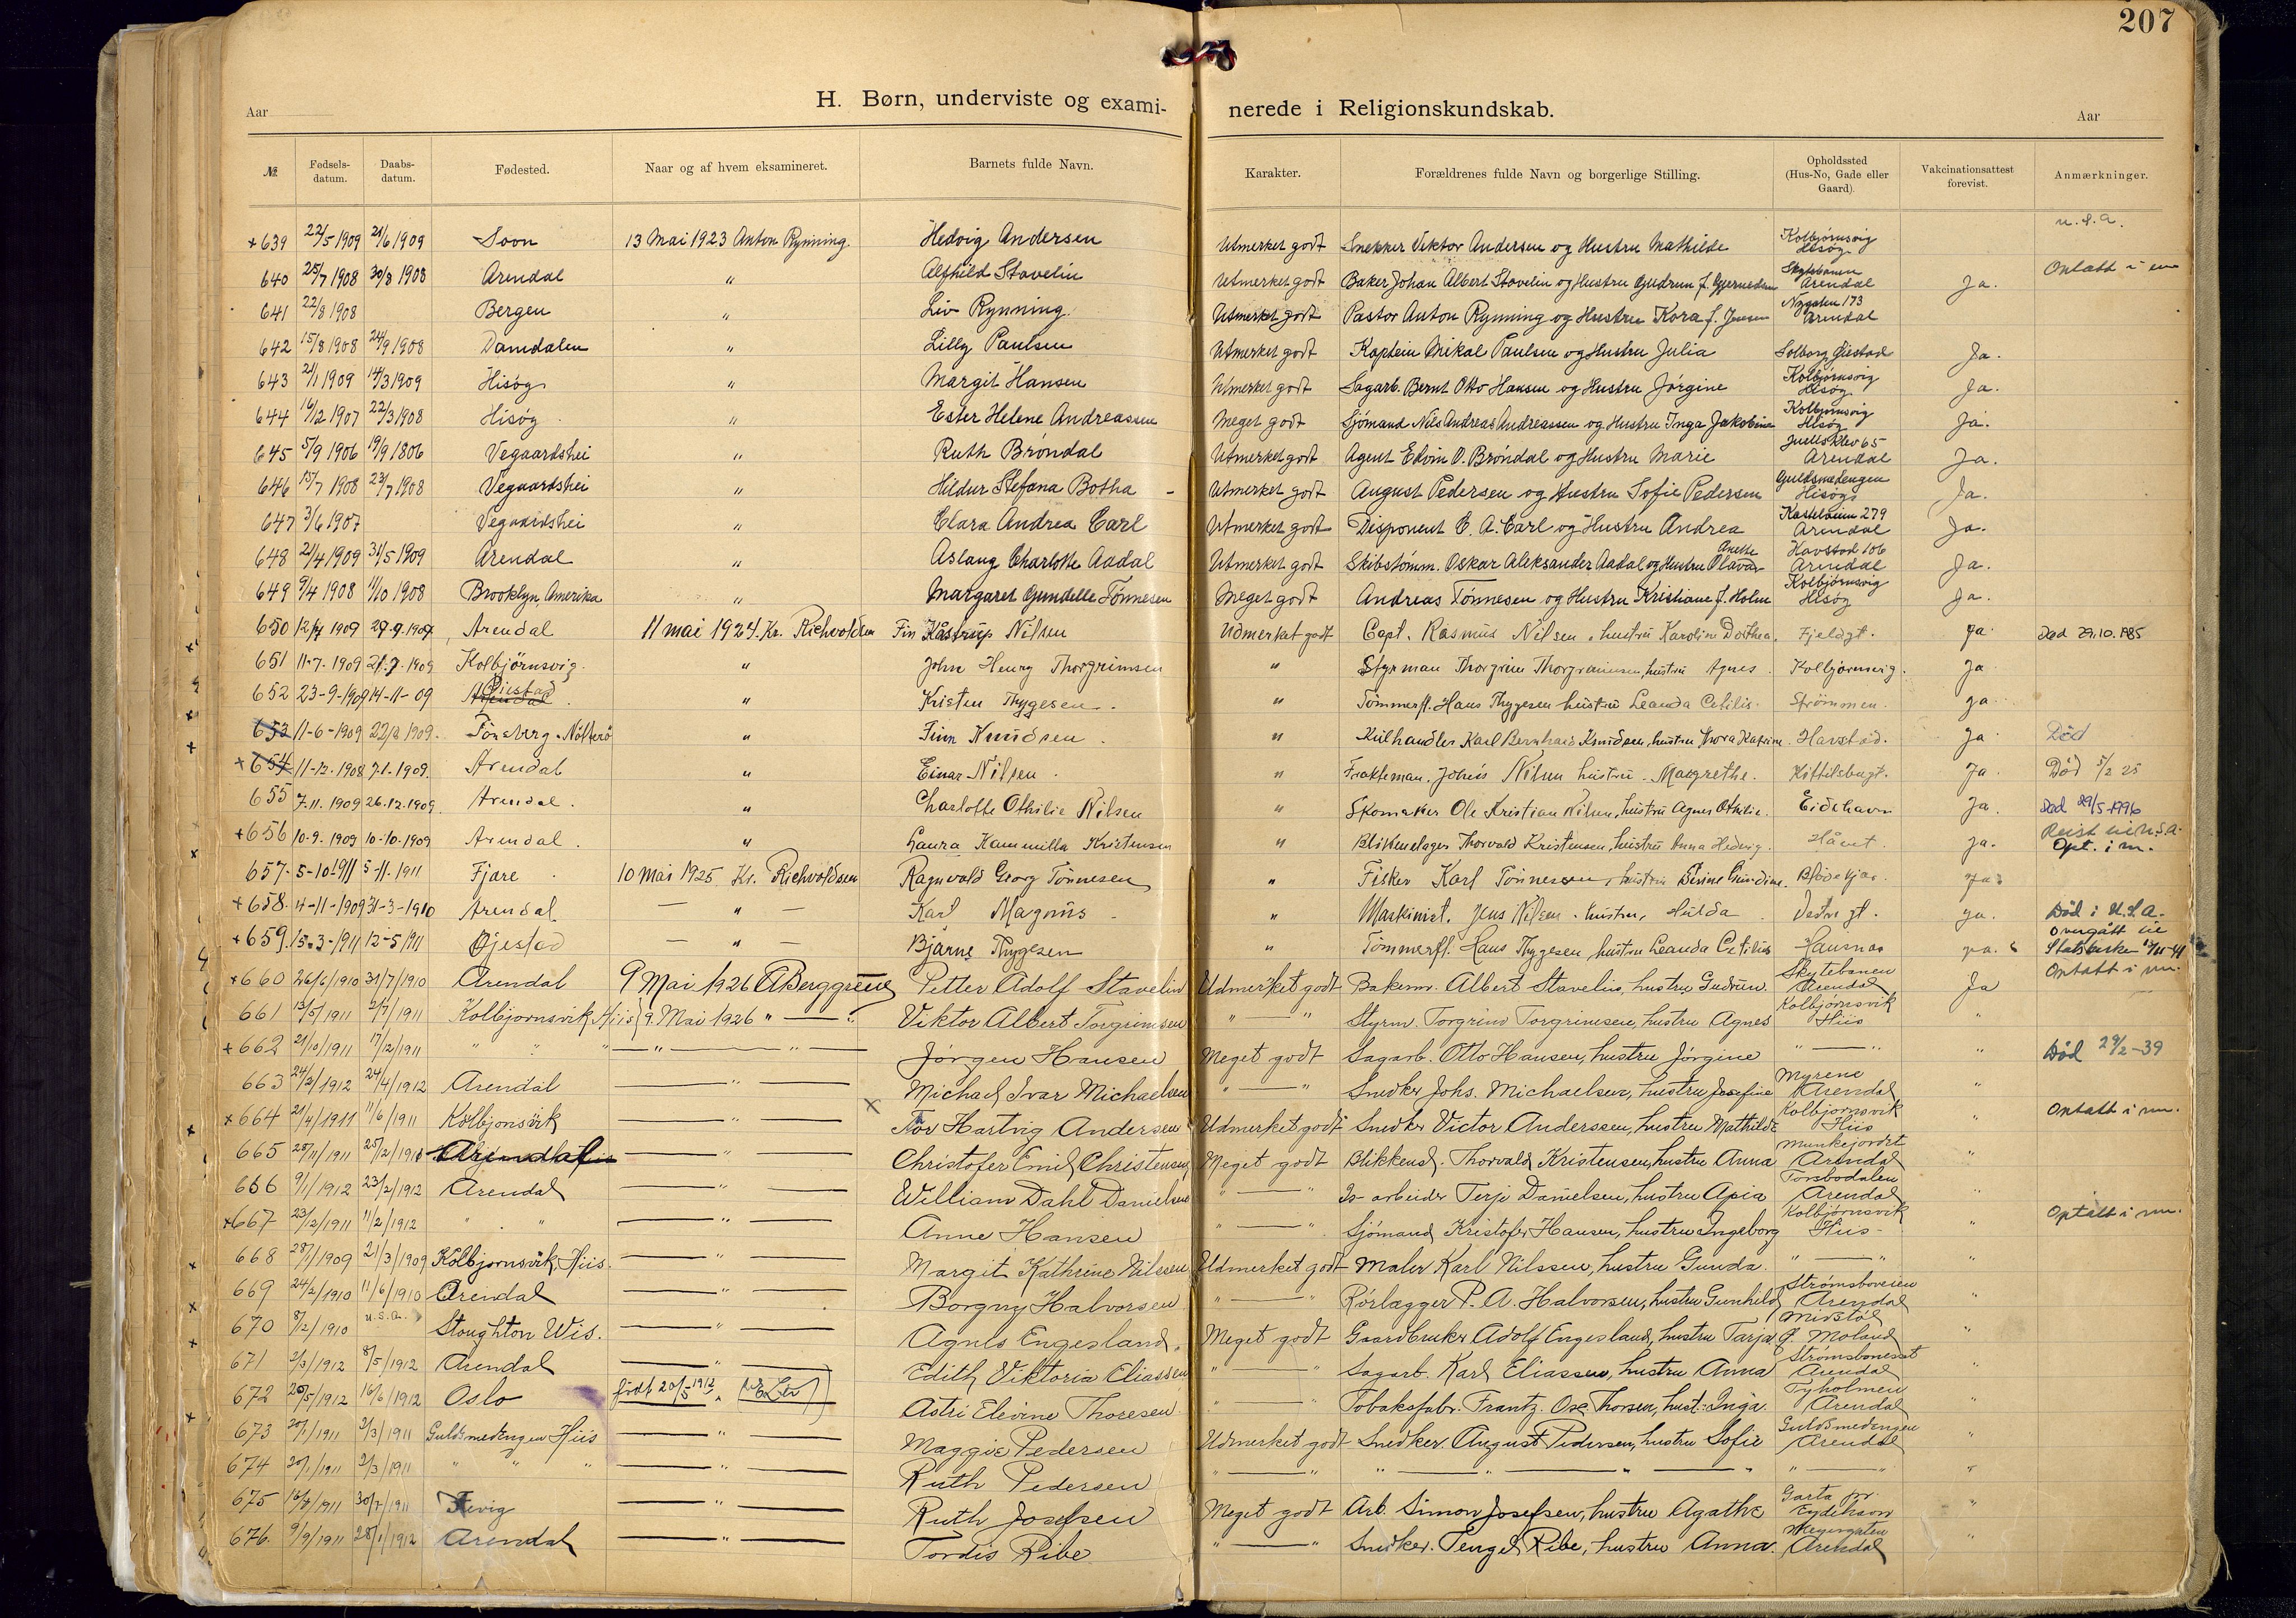 207
Aar H. Børn, underviste og exami- nerede i Religionskundskab. Aar
№ Fødselsdatum. Daabsdatum. Fødested. Naar og af hvem eksamineret. Barnets fulde Navn. Karakter. Forældrenes fulde Navn og borgerlige Stilling. Opholdssted (Hus-No, Gade eller Gaard). Vakcinationsattest forevist. Anmærkninger.
+639 22/5 1909 21/6 1909 Soon 13 Mai 1923 Anton Rynning. Hedvig Andersen Utmerket godt Snekker Viktor Andersen og Hustru Mathilde Kolbjørnsvig Hisøy u.s.a.
640 25/7 1908 30/8 1908 Arendal " Alfhild Stavelin Utmerket godt Baker Johan Albert Stavelin og Hustru Gudrun f. Skytebanen Arendal Ja. Optatt i
641 22/8 1908 Bergen " Liv Rynning Utmerket godt Pastor Anton Rynning og Hustru Kora f. Jensen Nygaten 173 Arendal
642 15/8 1908 24/9 1908 Damdalen " Lilly Paulsen Utmerket godt Kaptein Mikal Paulsen og Hustru Julia Solborg Øiestad Ja.
643 21/1 1909 14/3 1909 Hisøy " Margit Hansen Utmerket godt Sagarb. Bernt Otto Hansen og Hustru Jørgine Kolbjørnsvig Hisøy Ja.
644 16/12 1907 22/3 1908 Hisøy " Ester Helene Andreassen Meget godt Sjømand Nils Andreas Andreassen og Hustru Inga Jakobine Kolbjørnsvig Hisøy Ja.
645 5/9 1906 19/9 1806 Vegaardshei " Ruth Brøndal Utmerket godt Agent Edvin O. Brøndal og Hustru Marie Juells klev 65 Arendal Ja.
646 15/7 1908 23/7 1908 Vegaardshei " Hildur Stefana Botha - Utmerket godt August Pedersen og Hustru Sofie Pedersen Guldsmedengen Hisøy Ja.
647 3/6 1907 Vegaardshei " Clara Andrea Carl Utmerket godt Disponent C. A. Carl og Hustru Andrea Kastelveien 279 Arendal Ja.
648 21/4 1909 31/5 1909 Arendal " Aslaug Charlotte Aadal Utmerket godt Skibstømm. Oskar Aleksander Aadal og Hustru Olava Anette Havstad 106 Arendal Ja.
649 9/4 1908 11/10 1908 Brooklyn, Amerika " Margaret Gundelle Tønnesen Meget godt Andreas Tønnesen og Hustru Kristiane f. Holm Kolbjørnsvig Hisøy Ja.
650 12/4 1909 29.9.1909 Arendal 11 mai 1924. Kr. Richvoldsen Fin Kåstrup Nilsen Udmerket godt Capt. Rasmus Nilsen, hustru Karoline Dorthea. Fjeldgt. Ja. Død 29.10.1985
651 11-7. 1909 21.7.1909 Kolbjörnsvig. " John Henry Thorgrimsen " Styrman Thorgrim Thorgrimsen, hustru Agnes Kolbjørnsvig. Ja
652 23-9-1909 14-11-09 Øiestad " Kristen Thygesen. " Tømmerfl. Hans Thygesen hustru Leanda Cetilie. Strømmen. Ja
653 11-6-1909 22/8 1909. Tönsberg. Nötterö " Finn Knudsen. " Kulhandler Karl Bernhard Knudsen, hustru Thora Katrine. Havstad. Ja Död
+654 11-12. 1908 7.1.1909. Arendal " Einar Nilsen. " Fraktеman. Johús Nilsen hustru. Margrethe. Kittilsbugt. Ja. Död 5/2 25
655 7.11. 1909 26.12.1909 Arendal. " Charlotte Othilie Nilsen " Skomaker Ole Kristian Nilsen, hustru Agnes Othilie. Eidehavn Ja. Død 29/5-1996
+656 10-9. 1909 10-10-1909 Arendal. " Laura Kammilla Kristensen " Blikkenslager Thorvald Kristensen, hustru Anna Hedvig. Håvet. Ja. Reist til U.S.A. Opt. i m.
657. 5-10-1911 5-11.1911 Fjære. 10 mai 1925 Kr. Richvoldsen Ragnvald Georg Tönnesen " Fisker Karl Tönnesen, hustru Ja.
+658. 4-11-1909 31-3-1910 Arendal — " — Karl Magnus " Maskinist. Jens Nilsen. hustru, Hulda Vestregt. Ja. Död i U.S.A.
+659. 15.3-1911 12-5 1911 Øjestad — " — Bjarne Thygesen " Tömmerfl. Hans Thygesen, hustru Leanda Cetilie Ja. Overgått til Statskirke
+660 26/6/1910 31/7/1910 Arendal 9 Mai 1926 A Berggrene Petter Adolf Stavelin Udmerket godt Bakerm. Albert Stavelin, hustru Gudrun. Skytebanen Arendal Ja Optatt i m.
661 13/5/1911 2/7/1911 Kolbjornsvik, Hiis 9. Mai 1926 " — " Viktor Albert Torgrimsen " — " Styrm. Torgrim Torgrimsen, hustru Agnes Kolbjørnsvik Hiis "
+662 21/10/1911 17/12/1911 " " " — " — " — Jørgen Hansen Meget godt Sagarb. Otto Hansen, hustru Jörgine " — " " Död 29/2-39
663 24/2/1912 24/4/1912 Arendal — " — Michael Ivar Michaelsen " — " Snedker Johs. Michaelsen, hustru Josefine Myrene Arendal "
+664 21/4/1911 11/6/1911 Kolbjonsvik — " — Tor Hartvig Andersen Udmerket godt Snedker Victor Anderssen, hustru Mathilde Kolbjornsvik Hiis " Optatt i m.
665 28/11/1911 25/2/1910 Arendal — " — Christofer Emil Christensen Meget godt Blikkensl. Thorvald Kristensen, hustru Anna Munkejordet Arendal "
666 9/1/1912 23/2/1912 Arendal — " — William Dahl Danielsen " — " Is-arbeider Terje Danielsen, hustru Apia Torsbudalen Arendal "
+667 23/12/1911 11/2/1912 " " — " — Anne Hansen " — " Sjömand Kristofer Hansen, hustru Ingeborg Kolbjørnsvik Hiis - " Optatt i m.
668 28/1/1909 21/3/1909 Kolbjornsvik, Hiis. — " — Margit Kathrine Nilssen Udmerket godt Maler Karl Nilssen, hustru Gunda. " — " "
669 24/2/1910 11/6/1910 Arendal — " — Borgny Halvorsen " — " Rörlægger P. A. Halvorsen, hustru Gunhild Strømsboveien Arendal "
670 8/2/1910 u.s.a. Stoughton Wis. — " — Agnes Engesland. Meget godt Gaardbruker Adolf Engesland, hustru Tarja Mivstøl Ø. Moland "
671 2/3/1912 8/5/1912 Arendal — " — Edith Viktoria Eliassen " — " Sagarb. Karl Eliassen, hustru Anna Strømsbo Arendal "
672 20/5/1912 16/6/1912 Oslo födt 20/5 1912 Astri Elevine Thoresen " — " Tobaksfabr. Frantz. Osc. Thorsen, hust: Inga Tyholmen Arendal "
673 20/1/1911 2/3/1911 Guldsmedengen Hiis — " — Maggie Pedersen Udmerket godt Snedker August Pedersen, hustru Sofie Guldsmedengen Arendal "
674 20/1/1911 2/3/1911 " " " — " — Ruth Pedersen " — " " — " — " — " " — " "
675 16/4/1911 30/7/1911 Fevig — " — Ruth Josefsen Meget godt Arb. Simon Josefsen, hustru Agathe Garta pr. Eydehavn "
676. 9/9/1911 28/1/1912 Arendal — " — Tordis Ribe " — " Snedker. Tengel Ribe, hustru Anna. Arendal "